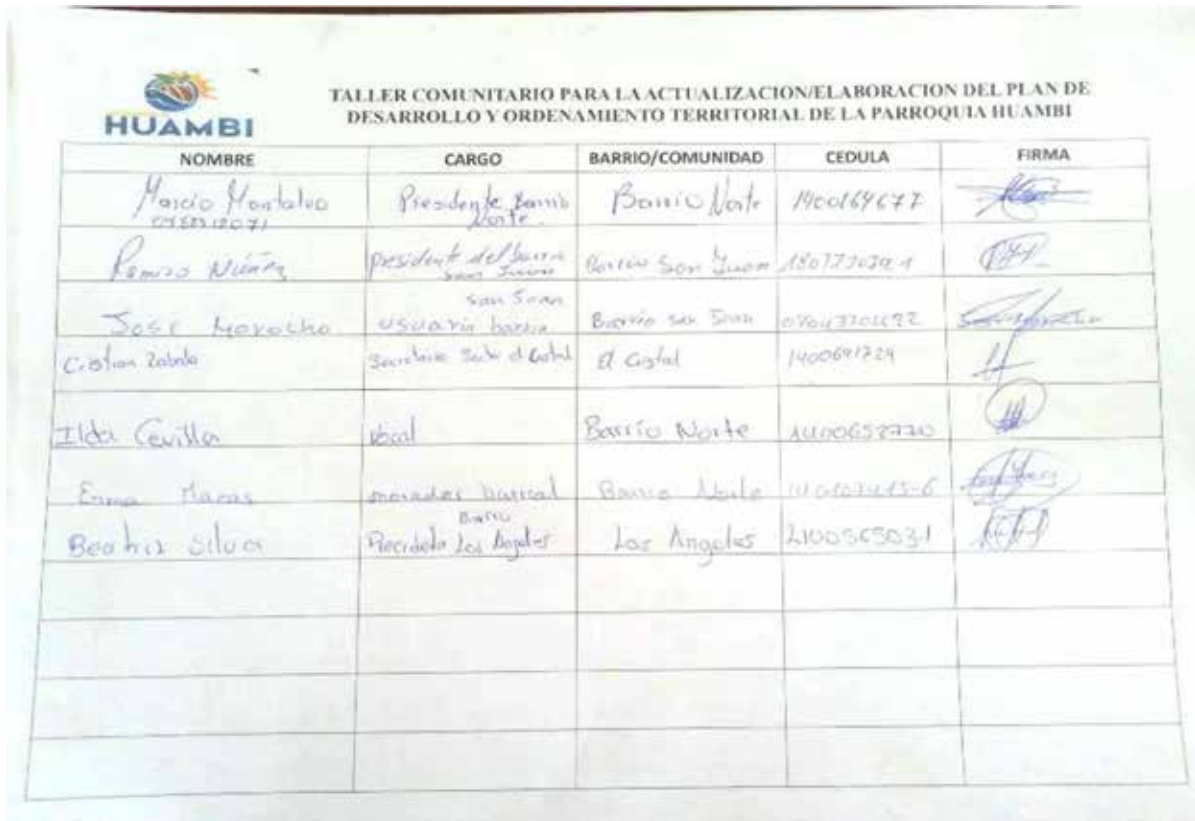 HUAMBI
TALLER COMUNITARIO PARA LA ACTUALIZACION/ELABORACION DEL PLAN DE
DESARROLLO Y ORDENAMIENTO TERRITORIAL DE LA PARROQUIA HUAMBI
NOMBRE CARGO BARRIO/COMUNIDAD CEDULA FIRMA
Marcio Montalvo Presidente Barrio Norte. Barrio Norte 1400164677
Ramiro Núñez presidente del barrio San Juan Barrio San Juan
José Morocho usuario barrio San Juan Barrio San Juan
Cristian Zabala El Cristal 1400691724
Ilda Cevilla vocal Barrio Norte 1400658770
Enma Macas morador Barrio Norte
Beatriz Silva Barrio Los Angeles Los Angeles 210056503-1